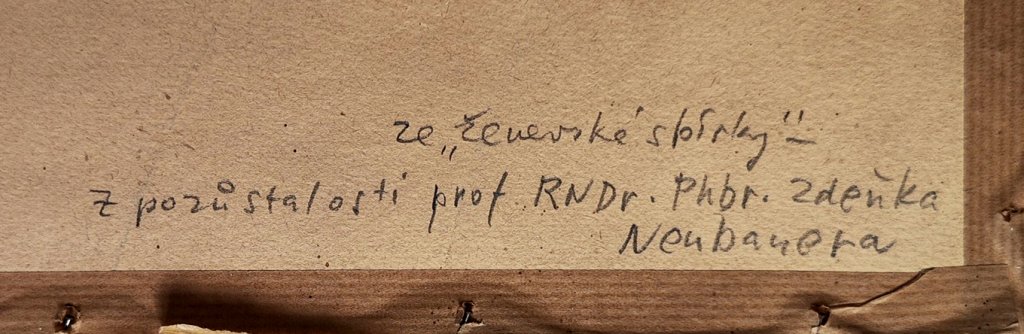 ze „ženevské sbírky" –
z pozůstalosti prof RNDr. Phbr. Zdeňka
Neubauera